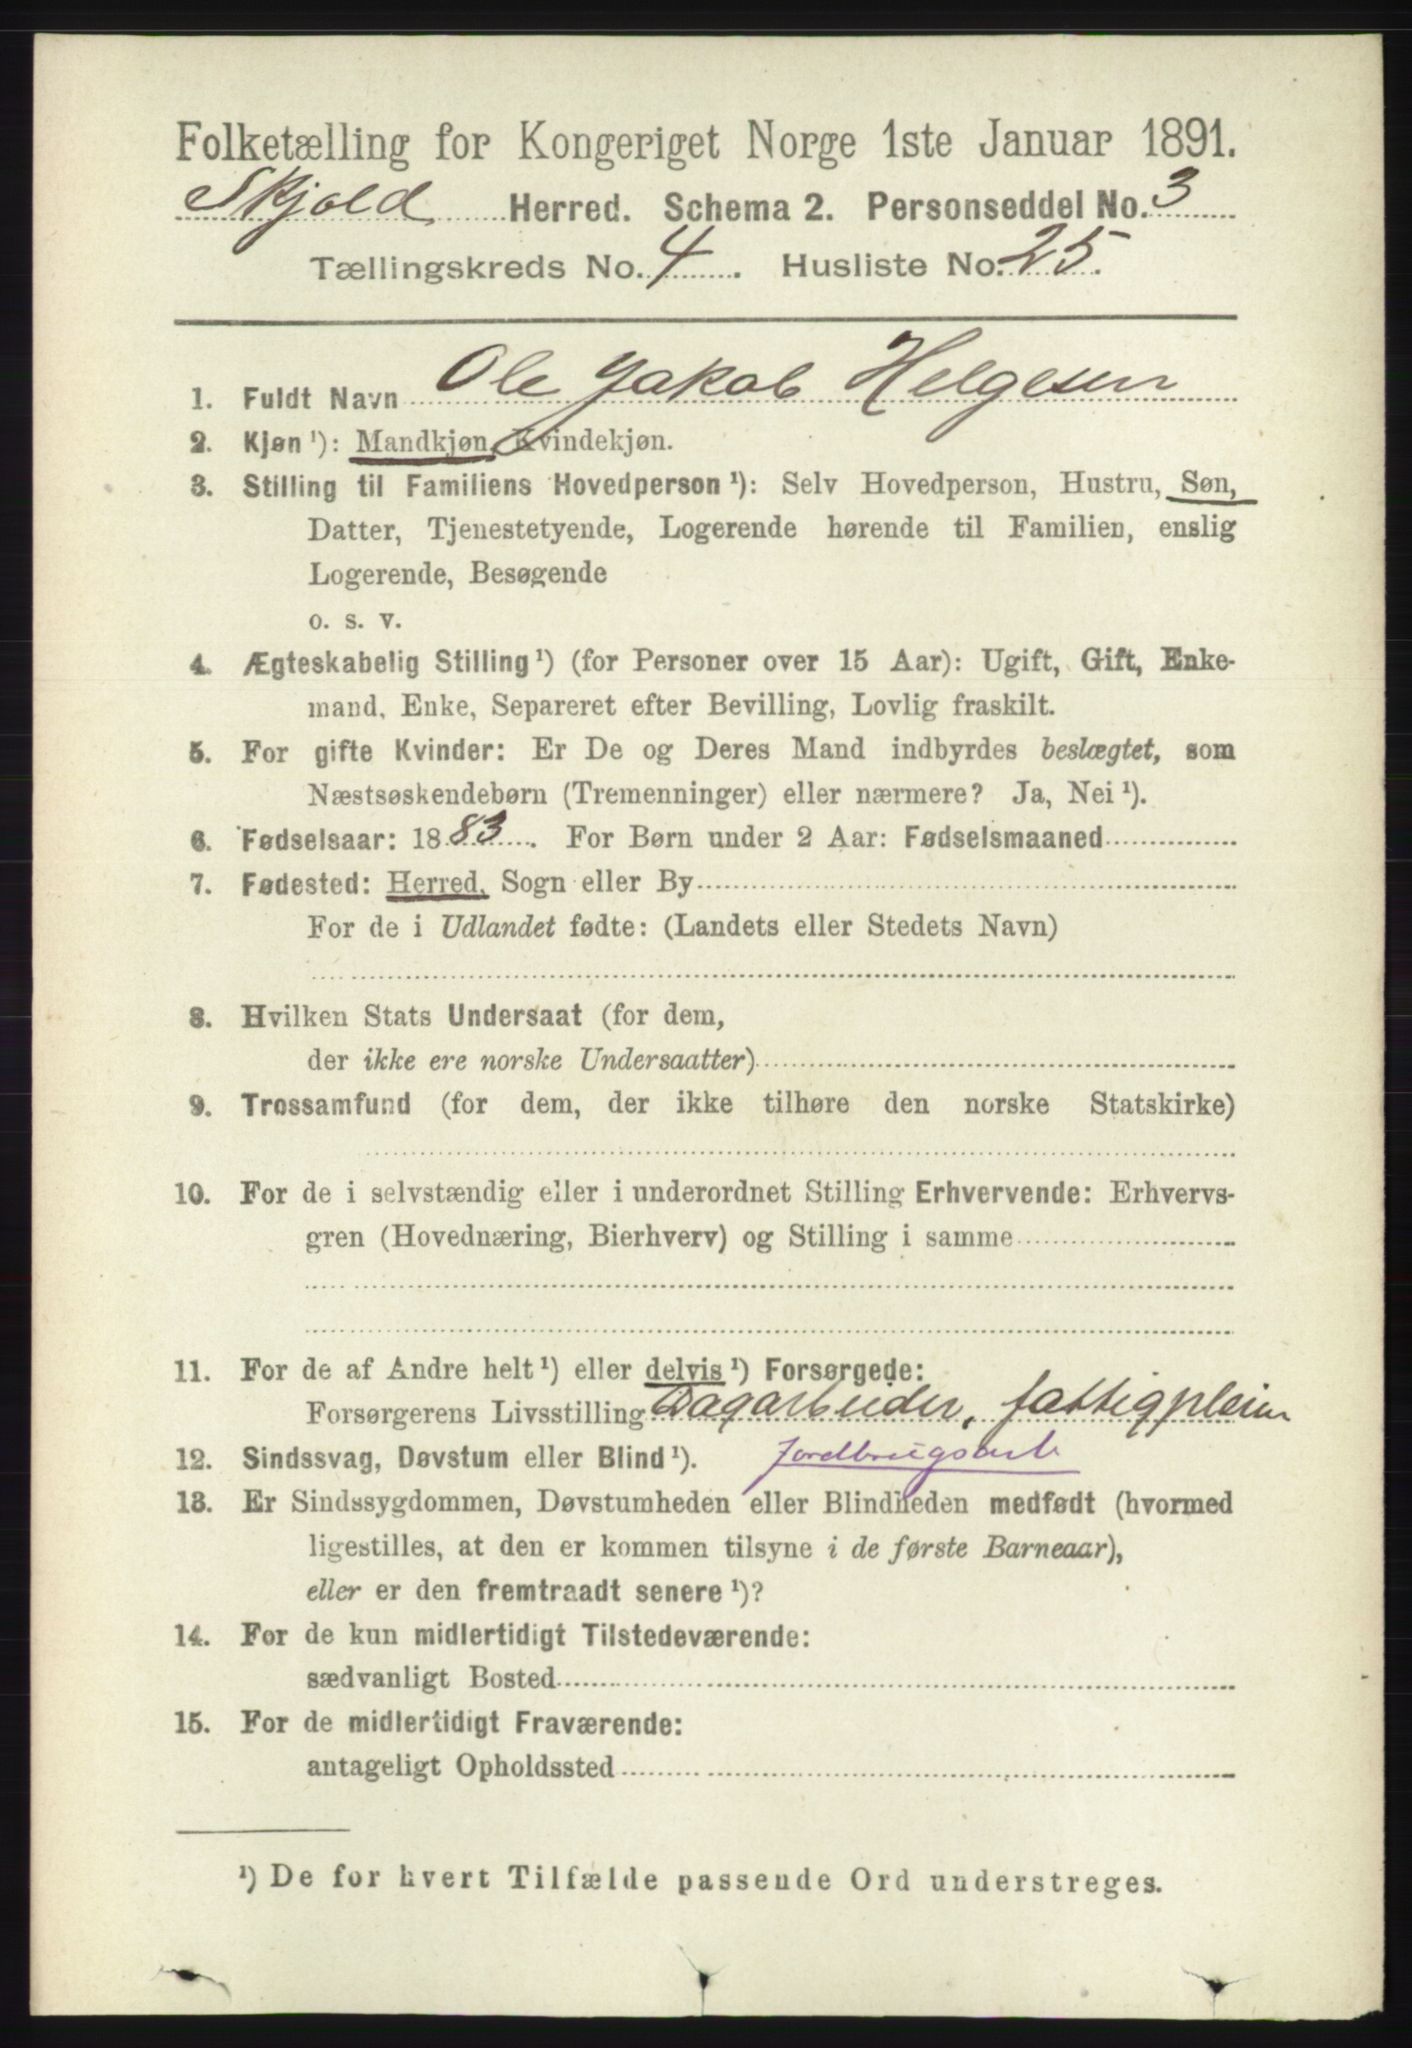 Folketælling for Kongeriget Norge 1ste Januar 1891.
Skjold Herred. Schema 2. Personseddel No. 3
Tællingskreds No. 4. Husliste No. 25.
1. Fuldt Navn Ole Jakob Helgesen
2. Kjøn ¹): Mandkjøn, Kvindekjøn.
3. Stilling til Familiens Hovedperson ¹): Selv Hovedperson, Hustru, Søn,
Datter, Tjenestetyende, Logerende hørende til Familien, enslig
Logerende, Besøgende
o. s. v.
4. Ægteskabelig Stilling ¹) (for Personer over 15 Aar): Ugift, Gift, Enke-
mand, Enke, Separeret efter Bevilling, Lovlig fraskilt.
5. For gifte Kvinder: Er De og Deres Mand indbyrdes beslægtet, som
Næstsøskendebørn (Tremenninger) eller nærmere? Ja, Nei ¹).
6. Fødselsaar: 1883. For Børn under 2 Aar: Fødselsmaaned
7. Fødested: Herred, Sogn eller By
For de i Udlandet fødte: (Landets eller Stedets Navn)
8. Hvilken Stats Undersaat (for dem,
der ikke ere norske Undersaatter)
9. Trossamfund (for dem, der ikke tilhøre den norske Statskirke)
10. For de i selvstændig eller i underordnet Stilling Erhvervende: Erhvervs-
gren (Hovednæring, Bierhverv) og Stilling i samme
11. For de af Andre helt ¹) eller delvis ¹) Forsørgede:
Forsørgerens Livsstilling Dagarbeider, fattigpleien
12. Sindssvag, Døvstum eller Blind ¹). Jordbrugsarb
13. Er Sindssygdommen, Døvstumheden eller Blindheden medfødt (hvormed
ligestilles, at den er kommen tilsyne i de første Barneaar),
eller er den fremtraadt senere ¹)?
14. For de kun midlertidigt Tilstedeværende:
sædvanligt Bosted
15. For de midlertidigt Fraværende:
antageligt Opholdssted
¹) De for hvert Tilfælde passende Ord understreges.